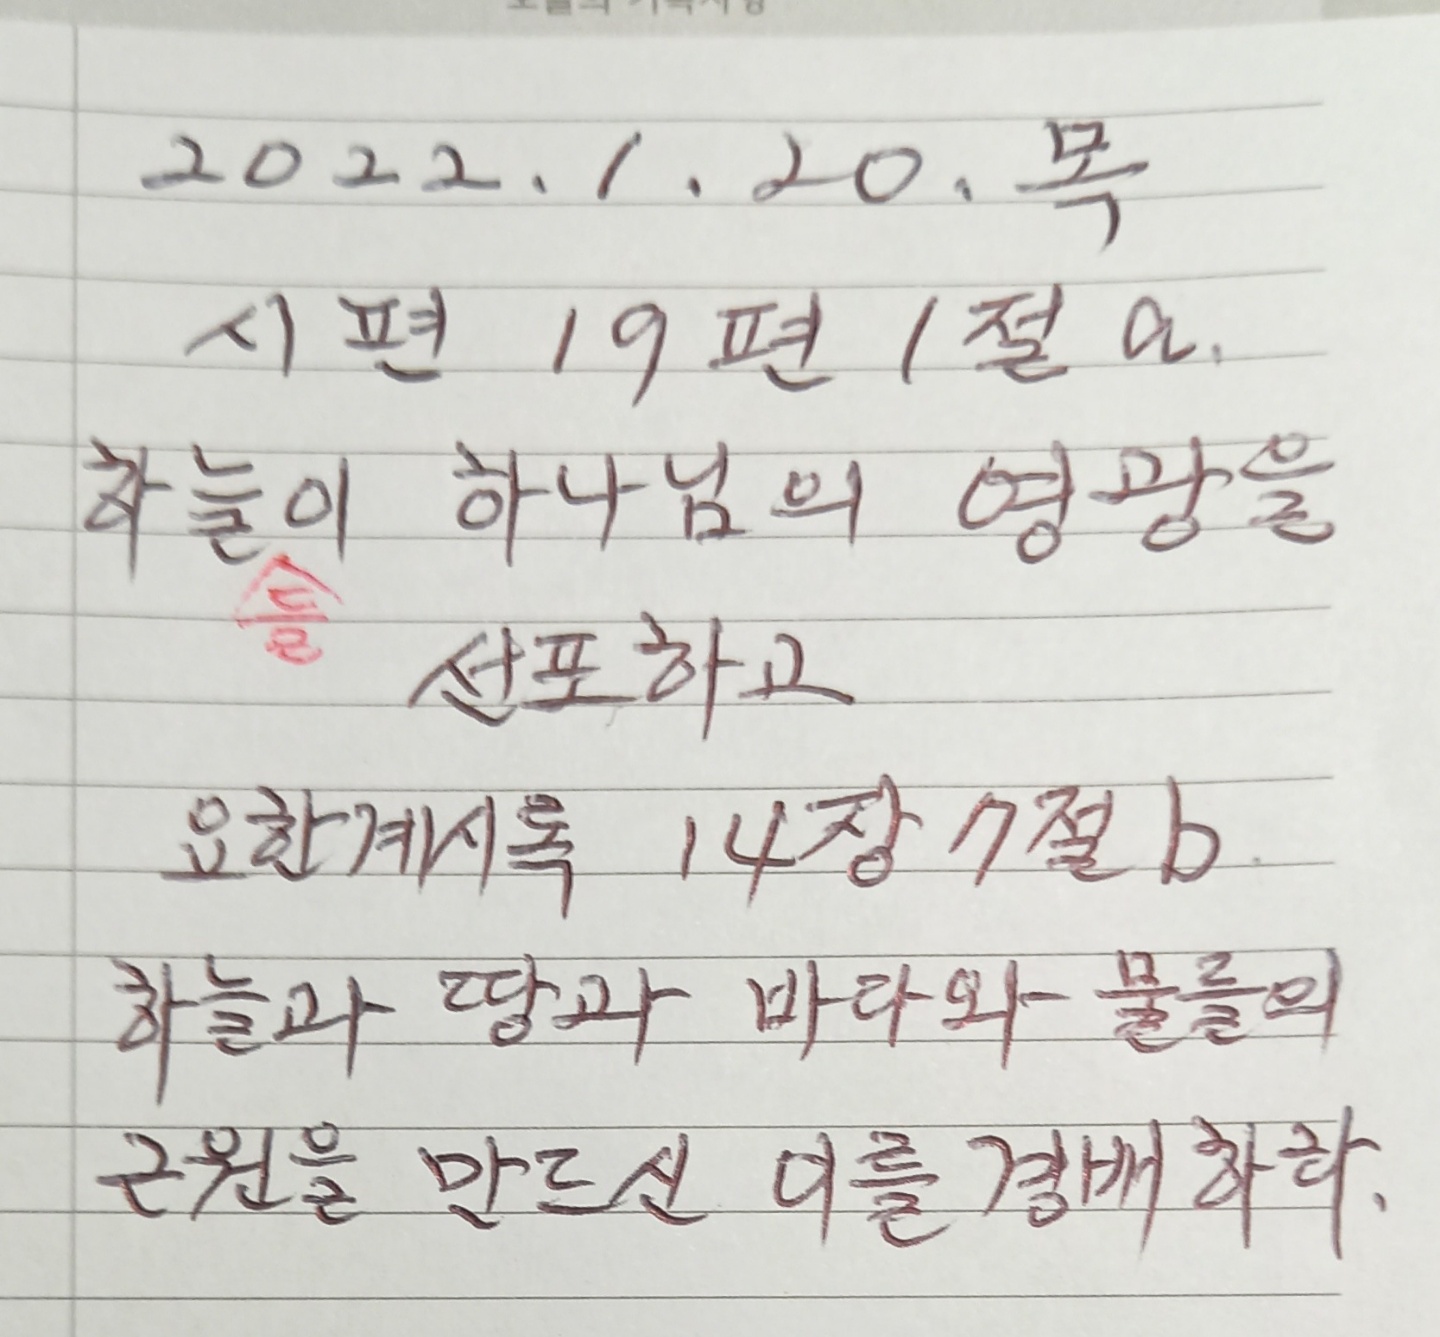 2022.1.20.목
시편 19편 1절 a.
하늘이 하나님의 영광을
들
선포하고
요한계시록 14장 7절 b.
하늘과 땅과 바다와 물들의
근원을 만드신 이를 경배하라.